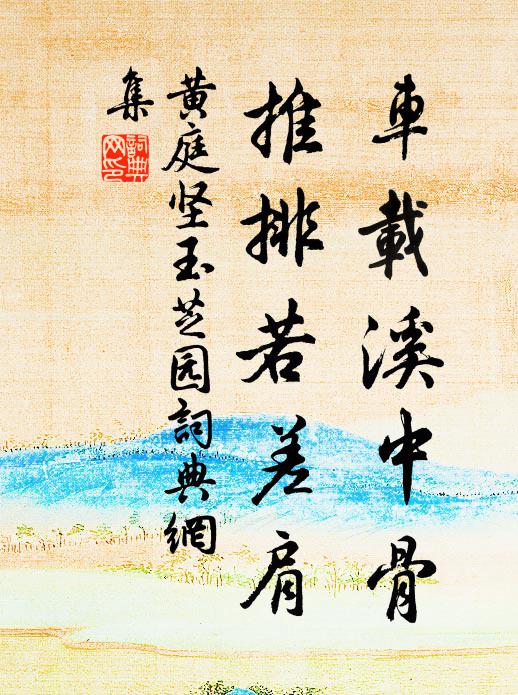 車載溪中骨
推排若差肩
黄庭坚玉芝园詞典網
集
詞典網印